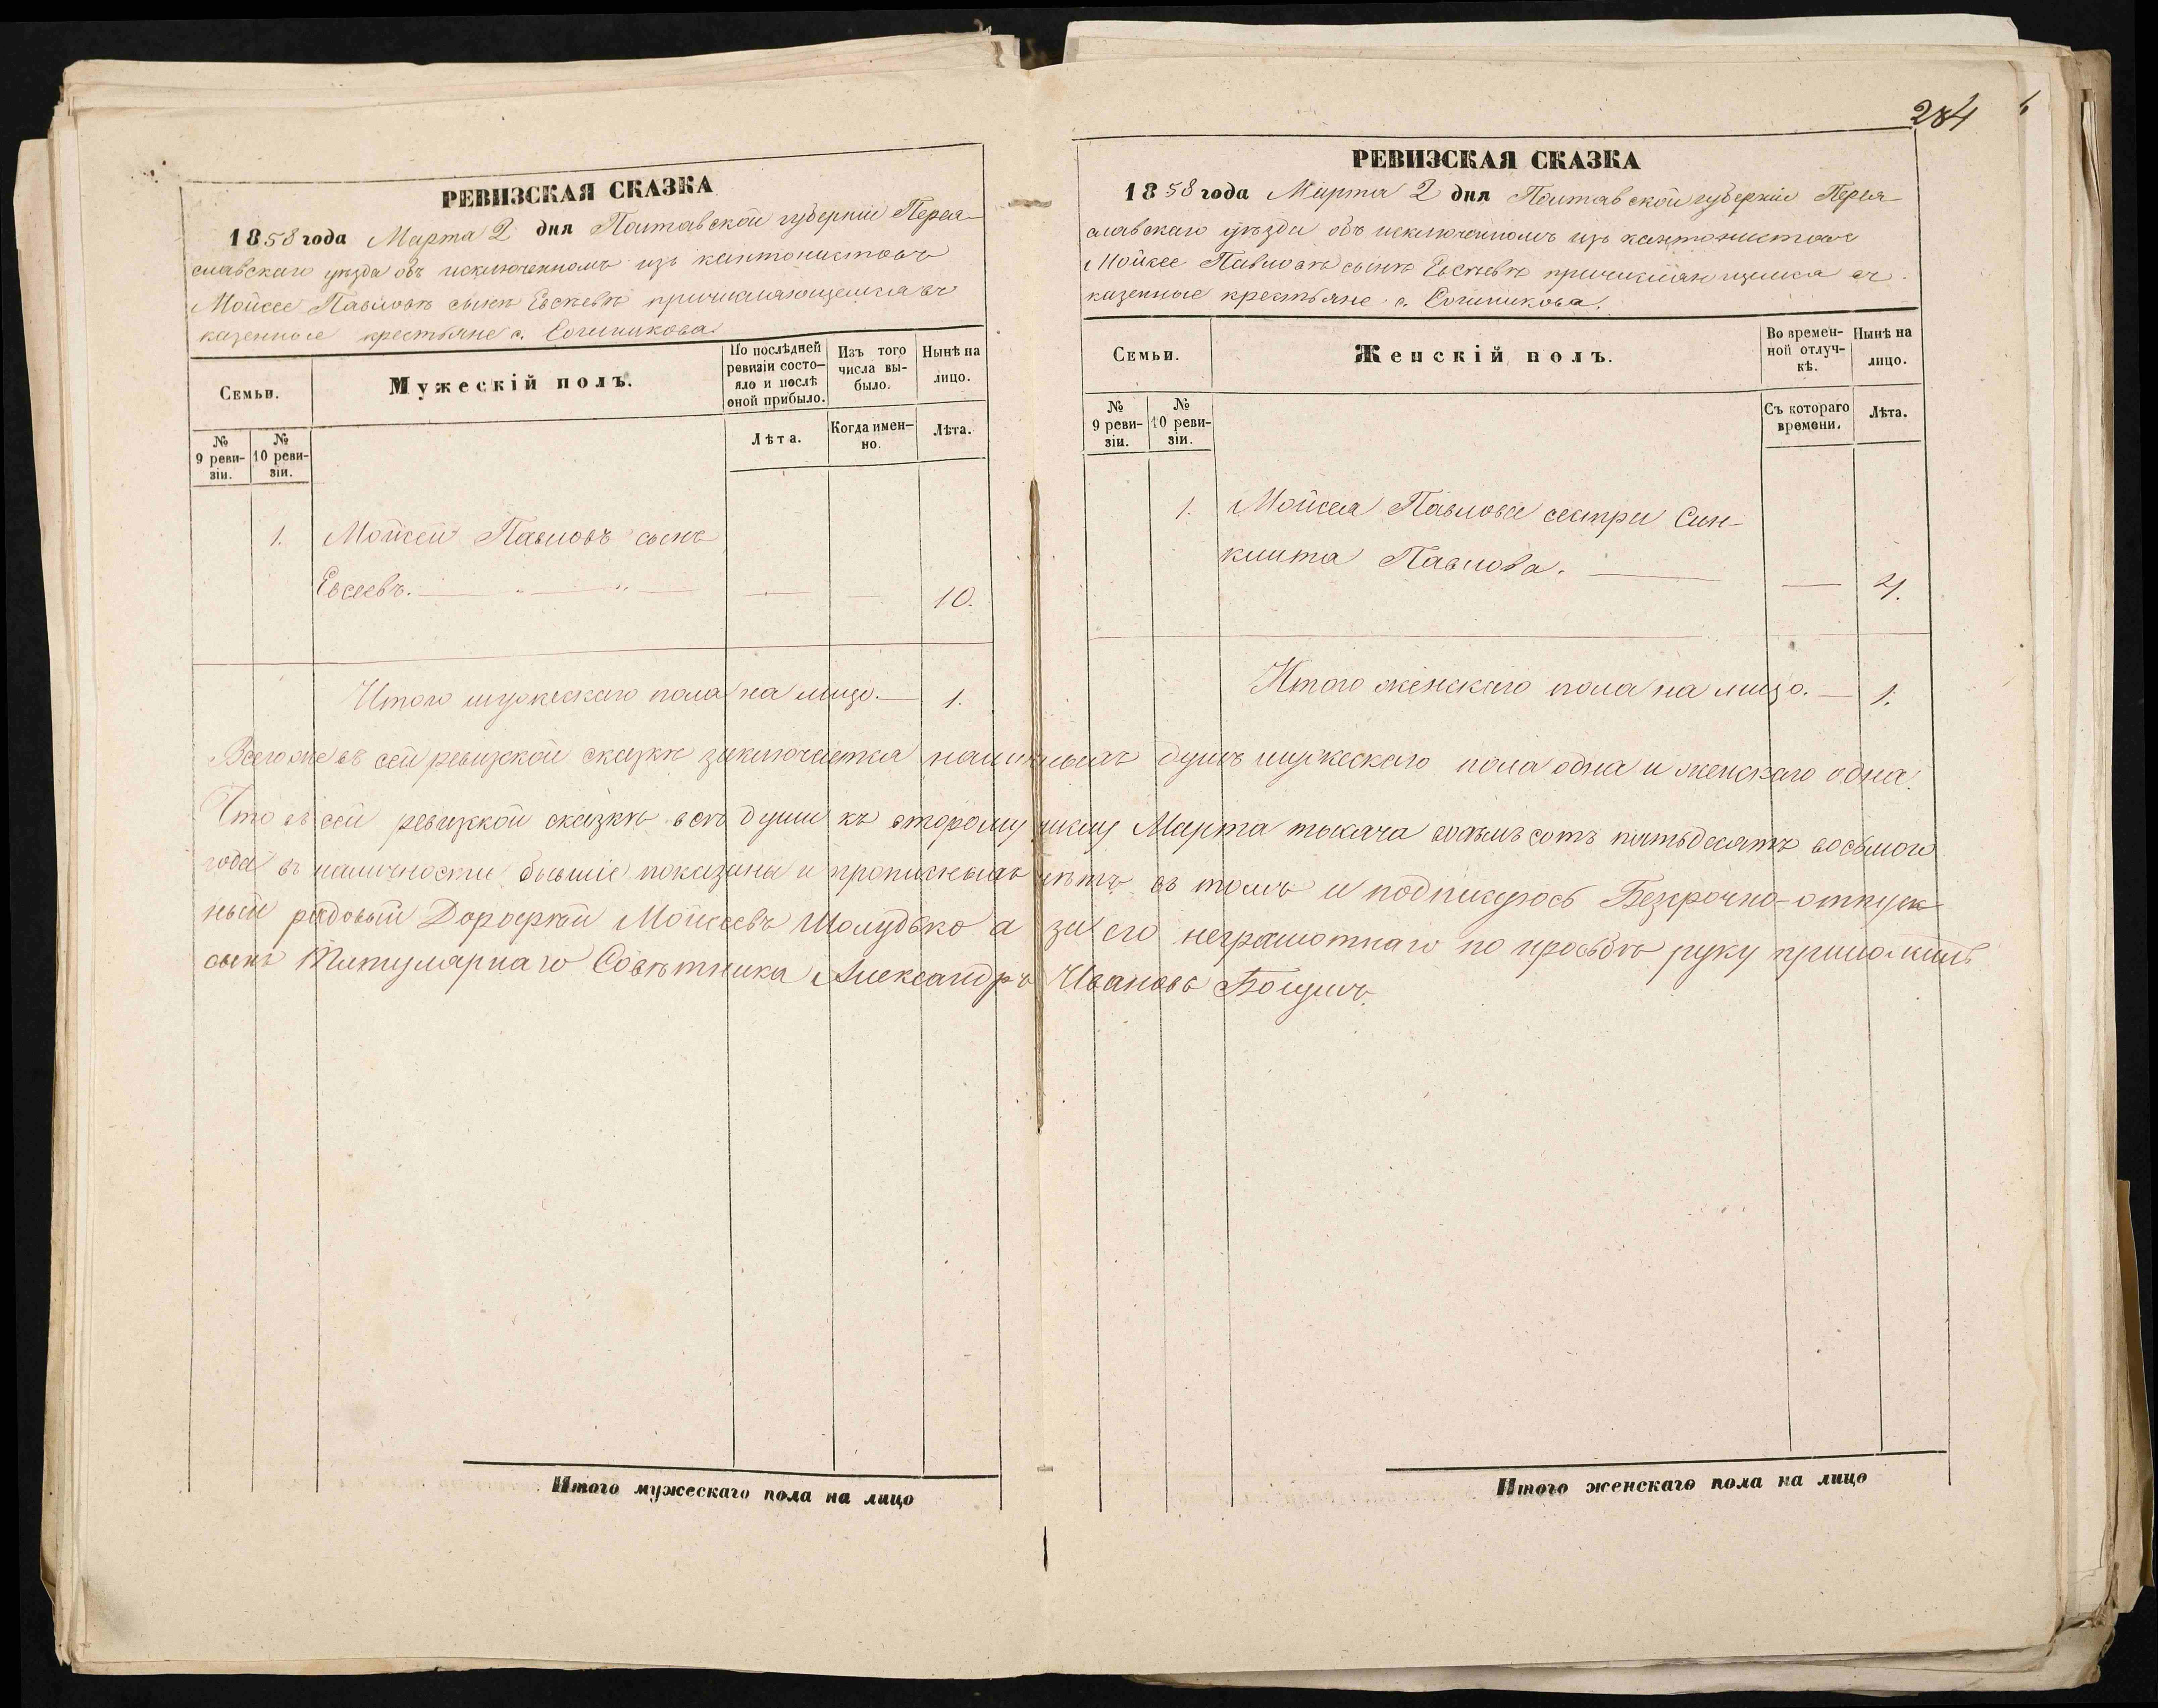 284
РЕВИЗСКАЯ СКАЗКА
1858 года Марта 2 дня Полтавской губерніи Перея-
славскаго уѣзда объ исключенномъ изъ кантонистовъ
Мойсее Павловѣ сынѣ Евсѣевѣ причисляющемся въ
казенные крестьяне с. Сошникова.
Семьи.
Мужескій полъ.
По послѣдней ревизіи состо-яло и послѣ оной прибыло.
Изъ того числа вы-было.
Нынѣ на лицо.
№ 9 реви-зіи.
№ 10 реви-зіи.
Лѣта.
Когда имен-но.
Лѣта.
1. Мойсей Павловъ сынъ
Евсеевъ. — „ — „ — — — 10.
Итого мужескаго пола на лицо. — 1.
РЕВИЗСКАЯ СКАЗКА
1858 года Марта 2 дня Полтавской губерніи Перея-
славскаго уѣзда объ исключенномъ изъ кантонистовъ
Мойсее Павловѣ сынѣ Евсѣевѣ причисляющемся въ
казенные крестьяне с. Сошникова.
Семьи.
Женскій полъ.
Во времен-ной отлуч-кѣ.
Нынѣ на лицо.
№ 9 реви-зіи.
№ 10 реви-зіи.
Съ котораго времени.
Лѣта.
1. Мойсея Павлова сестра Син-
клита Павлова. — —
Итого женскаго пола на лицо. — 1.
Всего же въ сей ревизской сказкѣ заключается наличныхъ душъ мужескаго пола одна и женскаго одна.
Что въ сей ревизской сказкѣ всѣ души къ второму числу Марта тысяча восемьсотъ пятьдесятъ восьмого
года въ наличности бывшіе показаны и прописныхъ нѣтъ въ томъ и подписуюсь Безсрочно-отпуск-
ный рядовый Дорофѣй Мойсеевъ Шолудько а за его неграмотнаго по просьбѣ руку приложилъ
сынъ Титулярнаго Совѣтника Александръ Ивановъ
Итого мужескаго пола на лицо
Итого женскаго пола на лицо